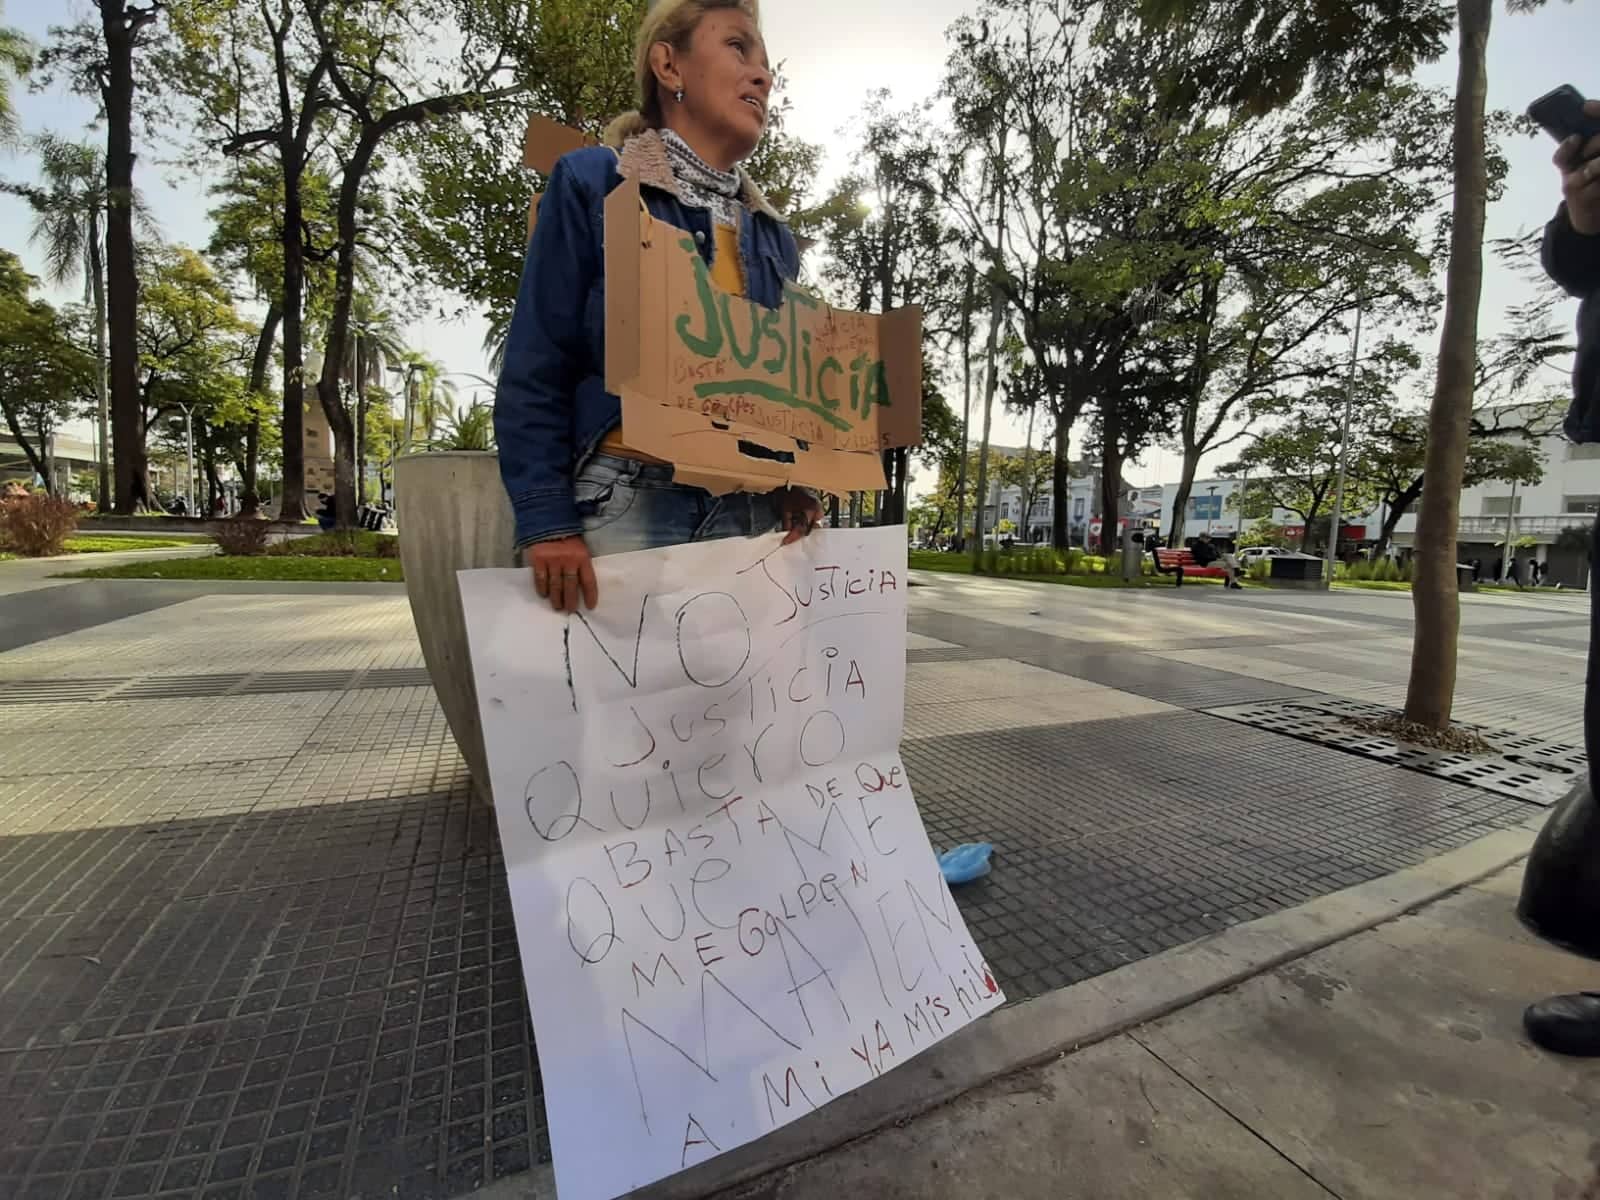 JUSTiCiA
BASTA
DE GOLPES JUSTICIA VIDAS
NO JusTiciA
JusTiCiA
QUierO
BASTA DE Que
QUe ME
ME GOLPeN
MATEN
A. Mi YA Mis hijos